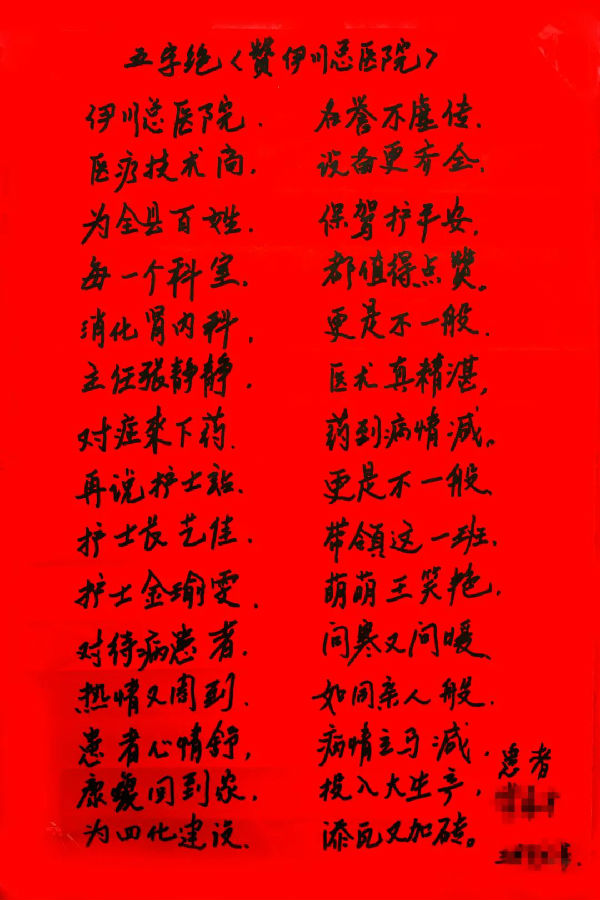 五字绝〈赞伊川总医院〉
伊川总医院. 名誉不虚传.
医疗技术高. 设备更齐全.
为全县百姓. 保驾护平安.
每一个科室. 都值得点赞。
消化肾内科, 更是不一般.
主任张静静. 医术真精湛,
对症来下药. 药到病情减。
再说护士站. 更是不一般、
护士长艺佳. 带领这一班.
护士金瑜雯. 萌萌王笑艳.
对待病患者. 问寒又问暖、
热情又周到. 如同亲人般.
患者心情舒, 病情立马减.
康复回到家. 投入大生产,
为四化建设. 添瓦又加砖。
患者